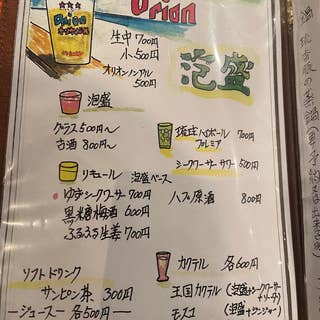 Orion
Orion
生中 700円
小 500円
オリオンノンアル
500円
泡盛
泡盛
グラス 500円〜
古酒 800円〜
琉球ハイボール 700円
プレミア
シークワーサーサワー 500円
リキュール 泡盛ベース
ゆずシークワーサー 700円
黒糖梅酒 600円
ぷるぷる生姜 700円
ハブ原酒 800円
ソフトドリンク
サンピン茶 300円
ージュースー 各500円ー
カクテル 各600円
王国カクテル (泡盛+シークワーサー
+ソーダ)
モスコ (泡盛+ジンジャー)